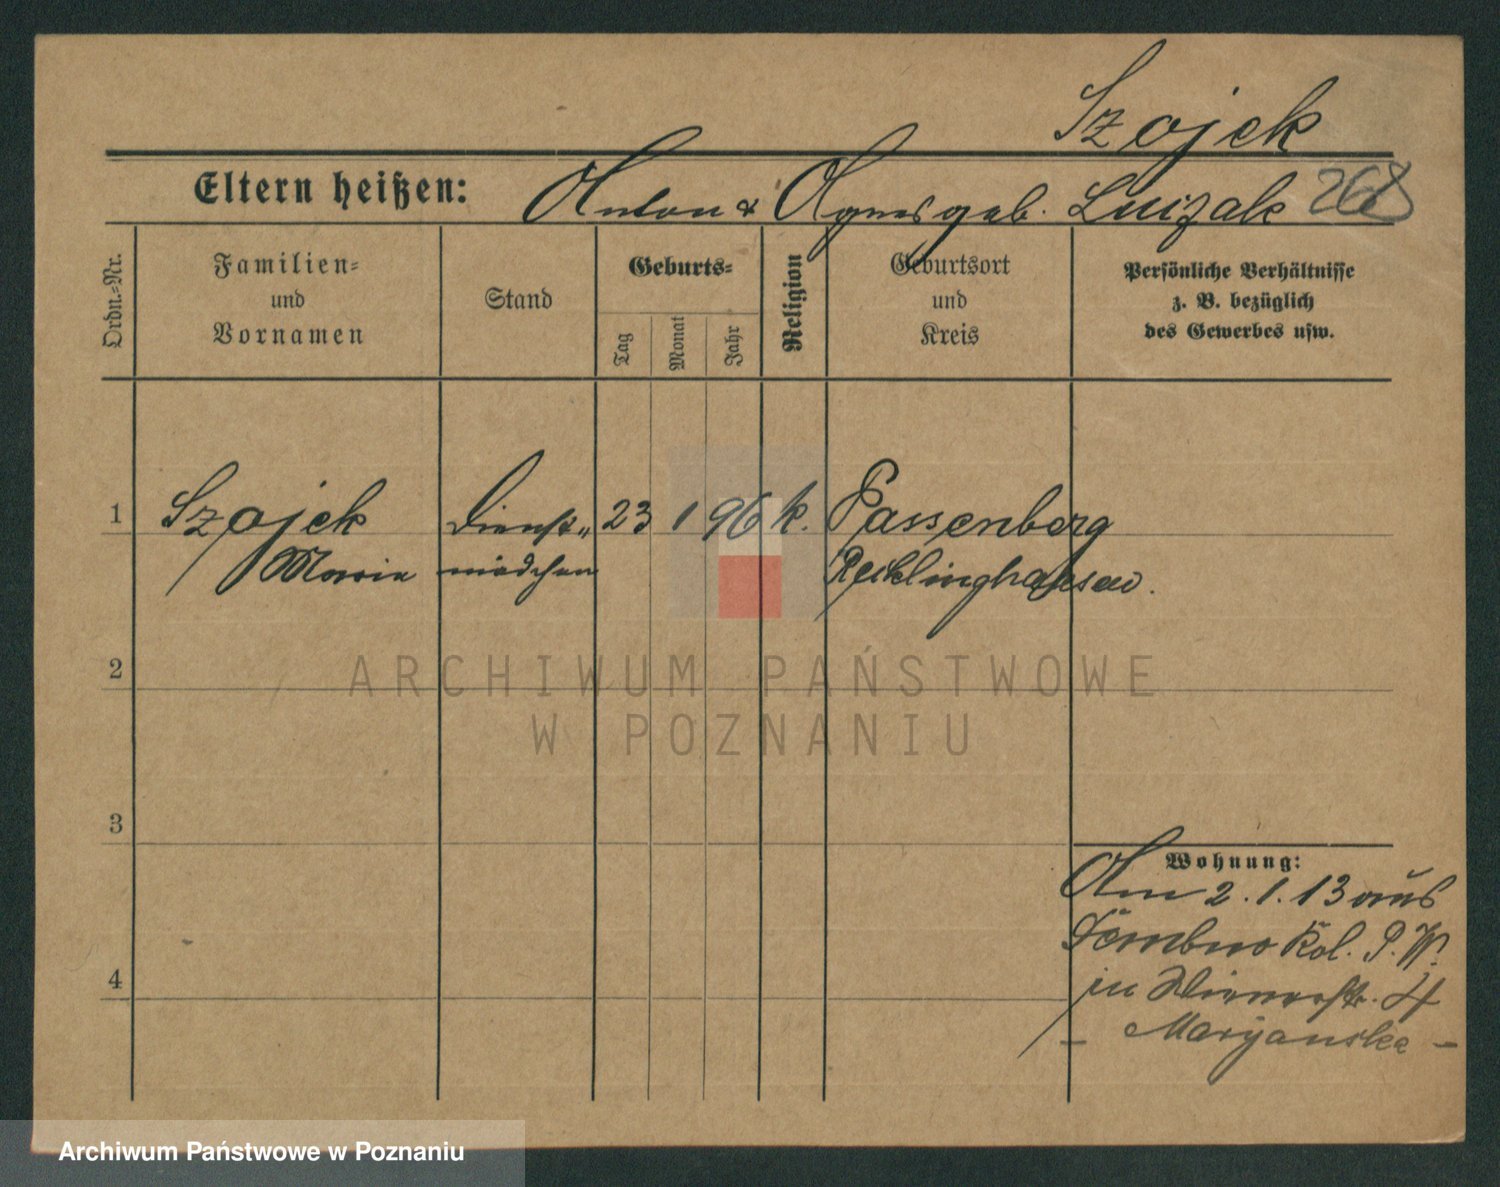 Szojek
Eltern heißen: Anton & Agnes geb. Luizak 268
Ordn.=Nr.
Familien=
und
Vornamen
Stand
Geburts=
Tag
Monat
Jahr
Religion
Geburtsort
und
Kreis
Persönliche Verhältnisse
z. B. bezüglich
des Gewerbes usw.
1 Szojek Dienst„ 23 1 96 k. Passenberg
Marie mädchen Recklinghausen.
2
ARCHIWUM PAŃSTWOWE
W POZNANIU
3
Wohnung:
Am 2.1.13 aus
Kol. P. W.
4
in Wienerstr. 4
- Maryanska -
Archiwum Państwowe w Poznaniu